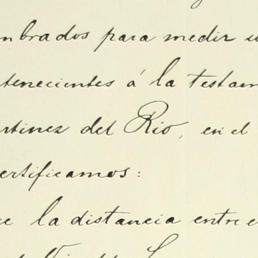 mbrados para medir u
tenecientes á la testam
rtinez del Rio, en el
ertificamos:
e la distancia entre e